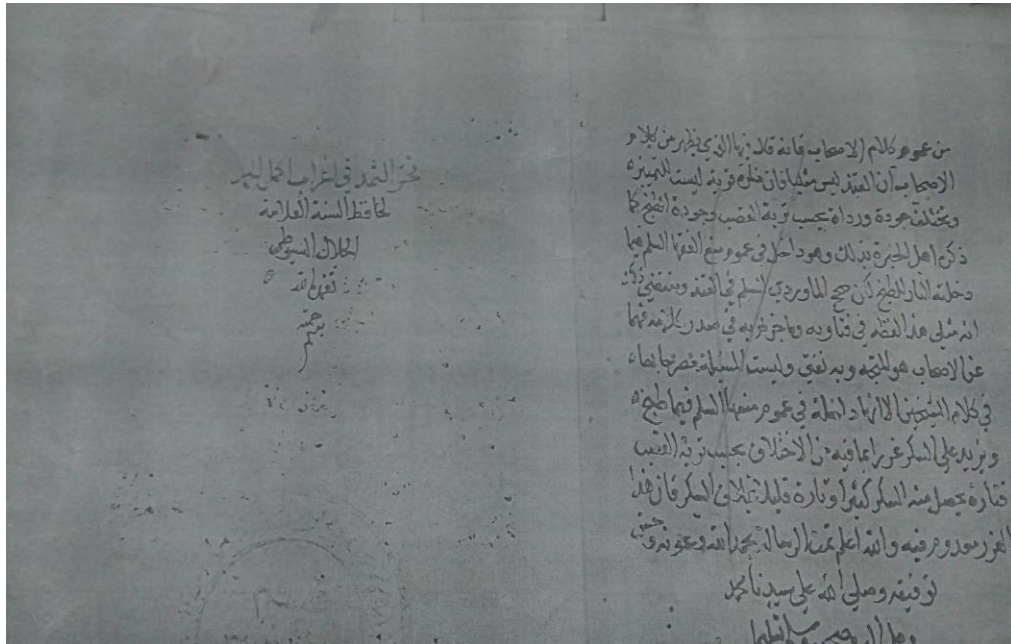 من عموم كلام الاصحاب فانه قال فيها الذي يظهر من كلام
الاصحاب ان القند ليس مثليا فان
ويختلف جودة ورداة بحسب تربة القصب وجودة الطبخ كما
ذكره اهل الخبرة بذلك وهو داخل في عموم منع الفقها السلم فيما
دخلته النار للطبخ لكن صحح الماوردي السلم في القند ويقتضي ذلك
انه مثلي هذا لفظه في فتاويه وما جزم به في صدر كلامه
عن الاصحاب هو المتجه وبه نفتي وليست المسئلة مصرحا بها
في كلام الشيخين الا انها داخلة في عموم منعهما السلم فيما طبخ
ويزيد على السكر غررا بما فيه من الاختلاف بحسب تربة القصب
فتارة يحصل منه السكر كثيرا وتارة قليلا بخلاف السكر فان هذا
الغرر معدوم فيه والله اعلم تمت الرسالة بحمد الله وعونه وحسن
توفيقه وصلى الله على سيدنا محمد
وعلى اله وصحبه وسلم
في اعراب اكمل الحمد
لحافظ السنة العلامة
الجلال السيوطي
تغمده الله
برحمته